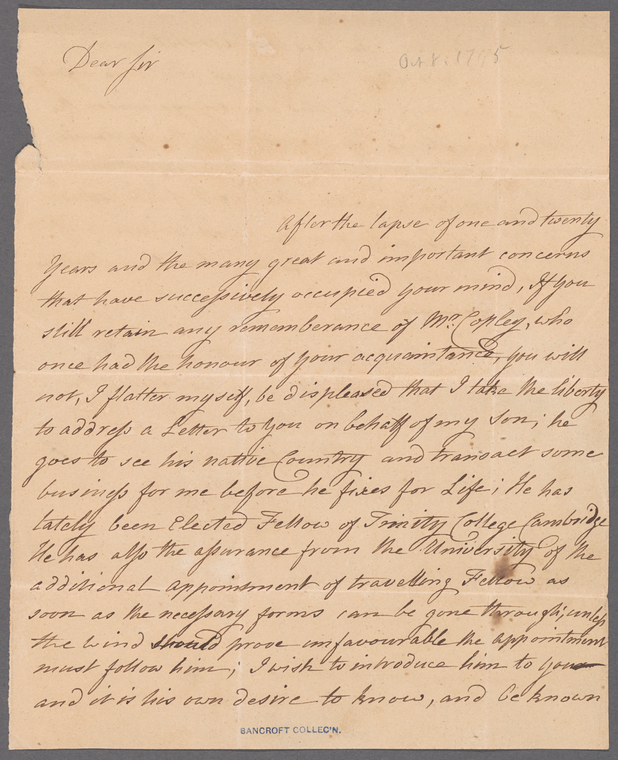 Dear Sir
Oct 8. 1795
After the lapse of one and twenty
Years and the many great and important concerns
that have successively occupied your mind, If you
still retain any rememberance of Mr. Copley, who
once had the honour of your acquaintance, you will
not, I flatter myself, be displeased that I take the liberty
to address a Letter to You on behalf of my Son; he
goes to see his native Country and transact some
business for me before he fixes for Life; He has
lately been Elected Fellow of Trinity College Cambridge
He has allso the assurance from the University of the
additional appointment of travelling Fellow as
soon as the necessary forms can be gone through; unless
the wind should prove unfavourable the appointment
must follow him; I wish to introduce him to you
and it is his own desire to know, and be known
BANCROFT COLLEC'N.